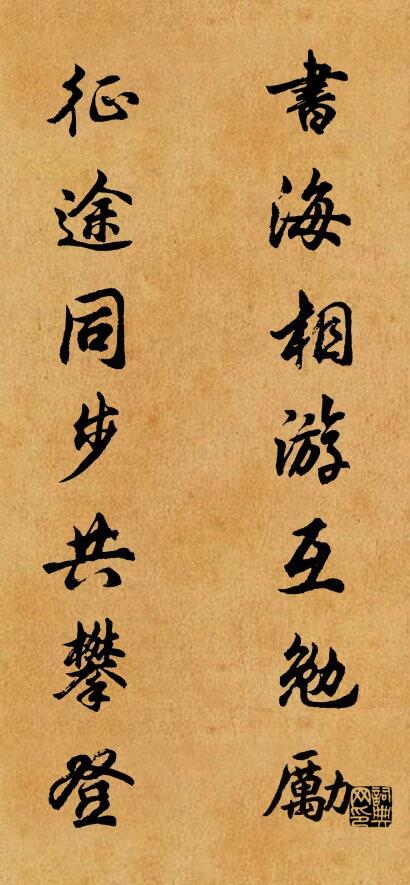 書海相游互勉勵
征途同步共攀登
詞典网